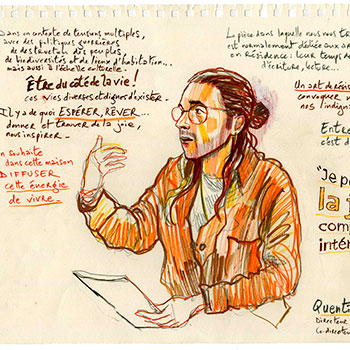 Dans un contexte de tensions multiples,
avec des politiques guerrières
de destruction des peuples,
de biodiversités et de lieux d'habitation...
mais aussi à l'échelle culturelle.
Être du côté de la vie !
ces vies diverses et dignes d'exister.
Il y a de quoi ESPÉRER, RÊVER...
donner et trouver de la joie.
nous inspirer.
on souhaite
dans cette maison
DIFFUSER
cette énergie
de vivre.
La pièce dans laquelle nous vous tr
est normalement dédiée aux a
en résidence : leur temps d
d'écriture, lecture...
Un art de résis
convoquer
nos indign
Entre
c'est d
"Je p
la j
comp
intéri
Quent
Directeur
Co-directeu